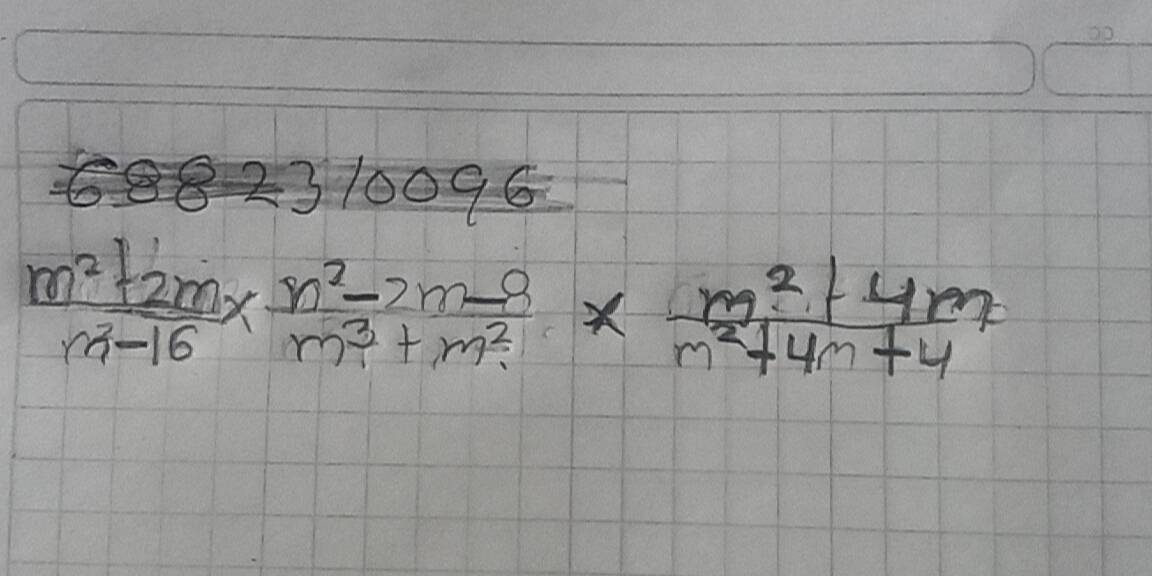 6882310096
m²+2m/m²-16 x m²-2m-8/m³+m² x m²+4m/m²+4m+4